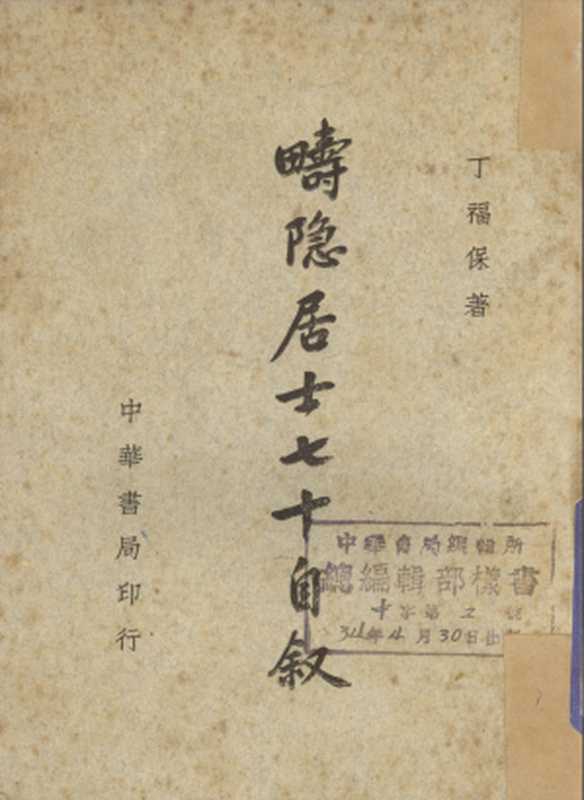 丁福保著
疇隐居士七十自叙
中華書局印行
中華書局編輯所
總編輯部樣書
十字第 2 號
34年4月30日出